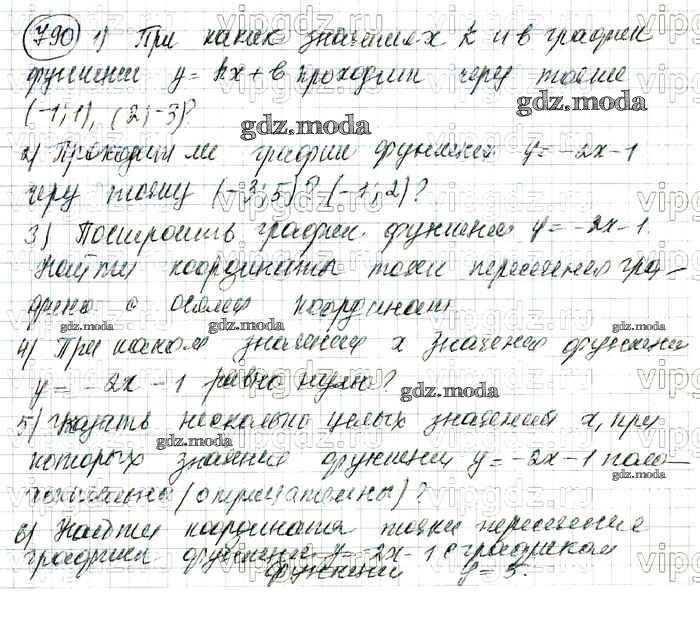 790 1) При каких значениях k и b график
функции y = kx + b проходит через точки
(-1; 1), (2; -3)?
2) Проходит ли график функции y = -2x - 1
через точку (-3; 5)? (-1; 2)?
3) Построить график функции y = -2x - 1.
Найти координаты точки пересечения гра-
фика с осями координат
4) При каком значении x значение функции
y = -2x - 1 равно нулю?
5) Указать несколько целых значений x, при
которых значение функции y = -2x - 1 поло-
жительны (отрицательны)?
6) Найти координаты точки пересечения
графика функции y = -2x - 1 с графиком
функции y = 5.
gdz.moda
vipgdz.ru